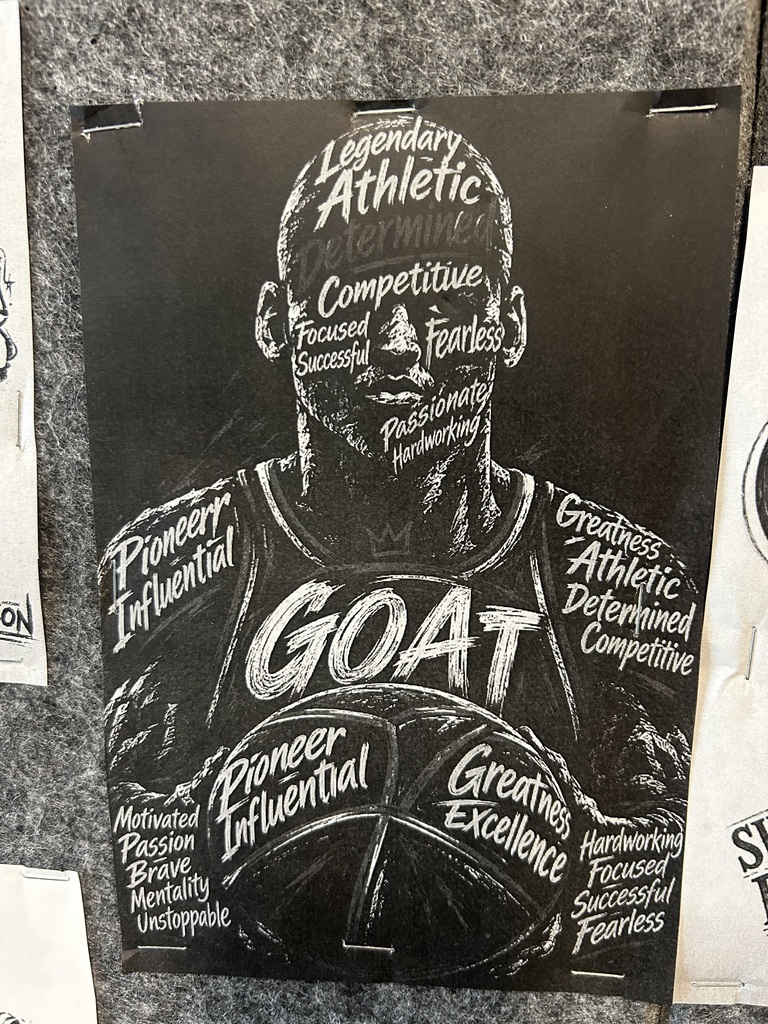 Legendary
Athletic
Determined
Competitive
Focused
Successful
Fearless
Passionate
Hardworking
Pioneerr
Influential
Greatness
Athletic
Determined
Competitive
GOAT
Pioneer
Influential
Greatness
Excellence
Motivated
Passion
Brave
Mentality
Unstoppable
Hardworking
Focused
Successful
Fearless
ON